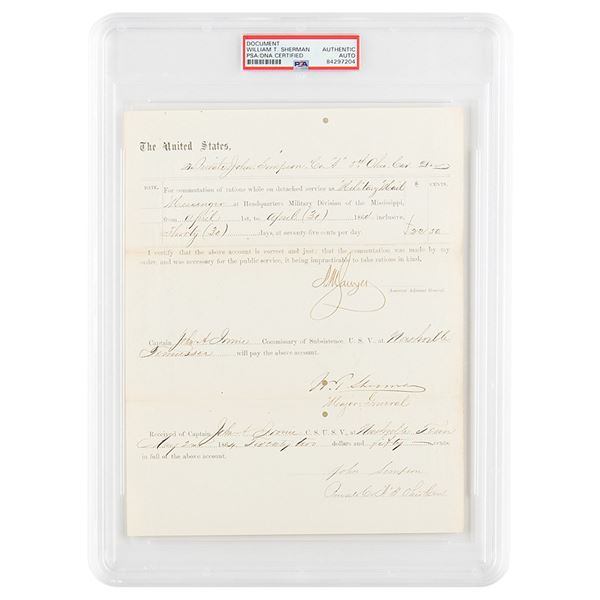 DOCUMENT
WILLIAM T. SHERMAN
PSA/DNA CERTIFIED
AUTHENTIC
AUTO
84297204
PSA
The United States,
Private John Simpson, Co. 3d Ohio Cav Dr.
DATE.
For commutation of rations while on detached service as Military Mail
$ CENTS.
Messenger at Headquarters Military Division of the Mississippi,
from April 1st, to April (30) 1864 inclusive,
Thirty (30) days, at seventy five cents per day. $22 50
I certify that the above account is correct and just; that the commutation was made by my
order, and was necessary for the public service, it being impracticable to take rations in kind.
Sawyer
Assistant Adjutant General.
Captain John A. Commissary of Subsistence, U. S. V., at Nashville
Tennessee will pay the above account.
W. T. Sherman
Major General
Received of Captain John A. C. S. U. S. V., at Nashville Tenn
May 2nd 1864 Twenty two dollars and fifty cents
in full of the above account.
John Simpson
Private Co. Ohio Cav